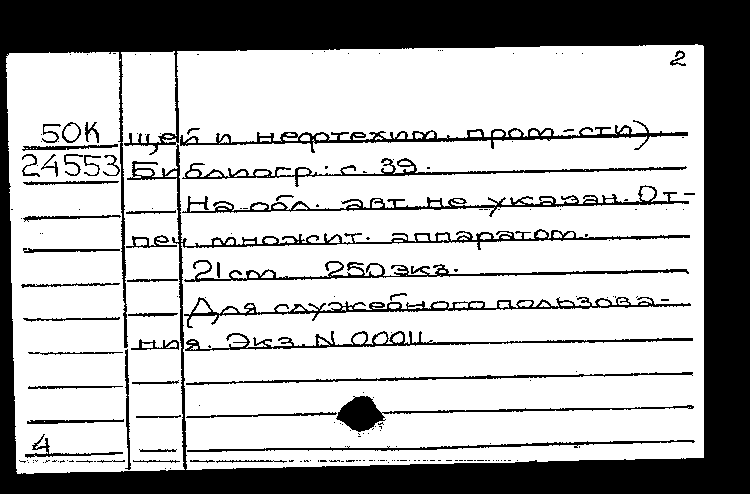 2
50К щей и нефтехим. пром-сти)
24553 Библиогр.: с. 39.
На обл. авт. не указан. От-
печ. множит. аппаратом.
21 cm 250 экз.
Для служебного пользова-
ния. Экз. N 00011.
4